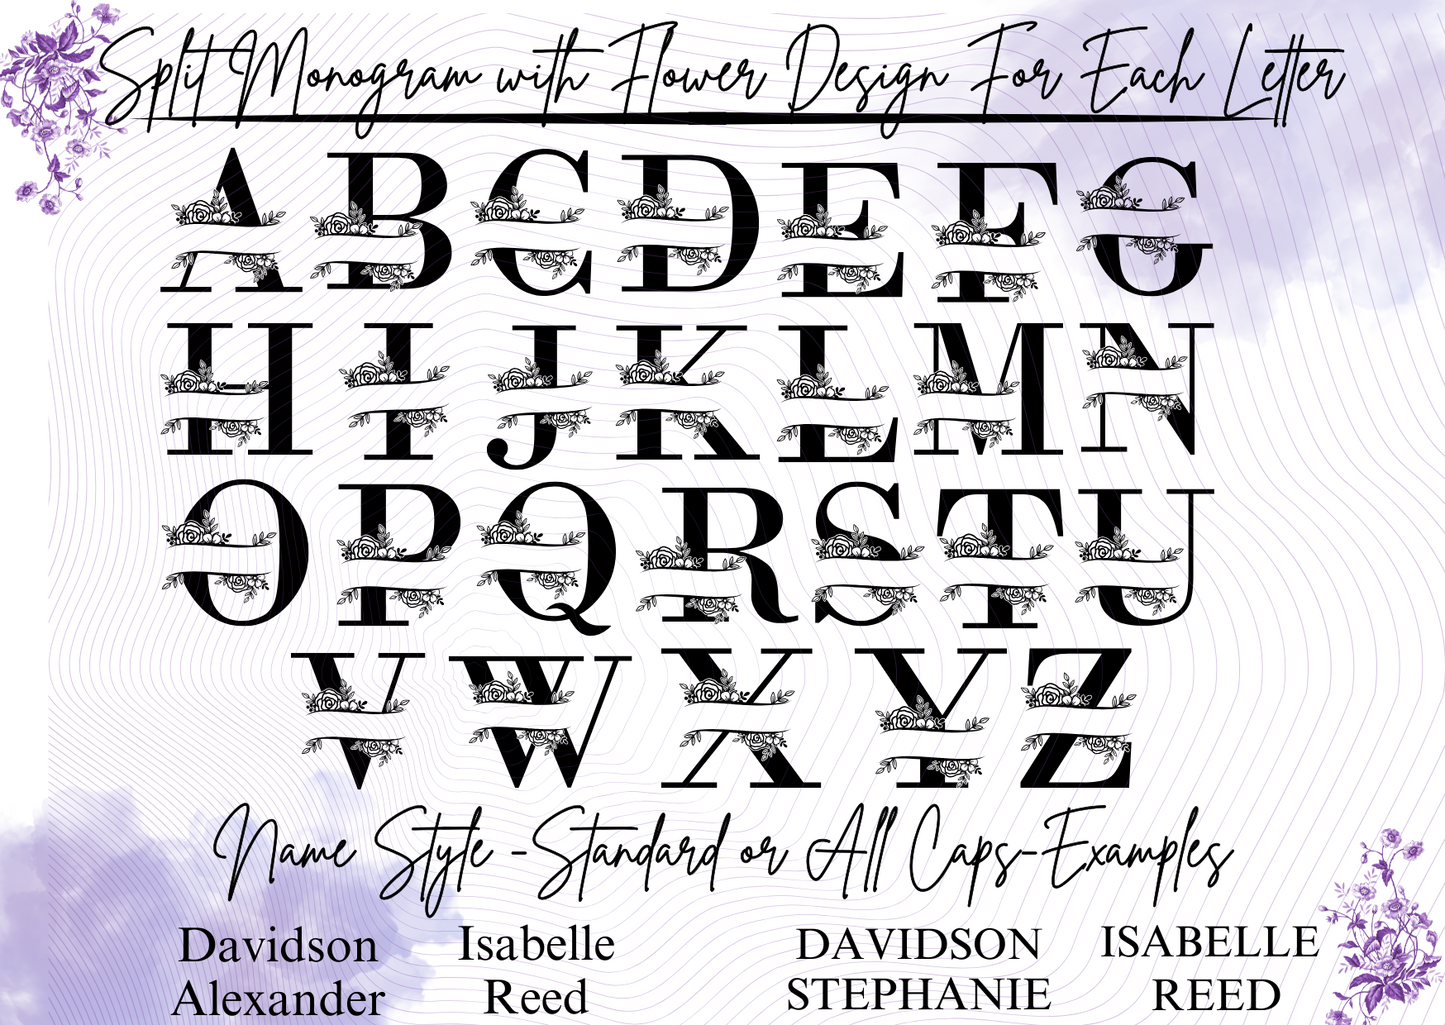 Split Monogram with Flower Design For Each Letter
A B C D E F G
H I J K L M N
O P Q R S T U
V W X Y Z
Name Style -Standard or All Caps-Examples
Davidson Isabelle DAVIDSON ISABELLE
Alexander Reed STEPHANIE REED